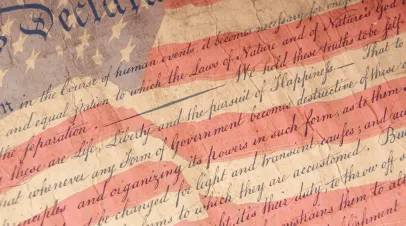 Declara
n in the Course of human events, it becomes necessary for
and equal station to which the Laws of Nature and of Nature's God
the separation. — We hold these truths to be self-
these are Life, Liberty and the pursuit of Happiness. — That to
that whenever any Form of Government becomes destructive of these
principles and organizing its powers in such form, as to them
d be changed for light and transient causes; and acc
rms to which they are accustomed. Bu
it is their duty, to throw off s
constrains them to alt
blishment